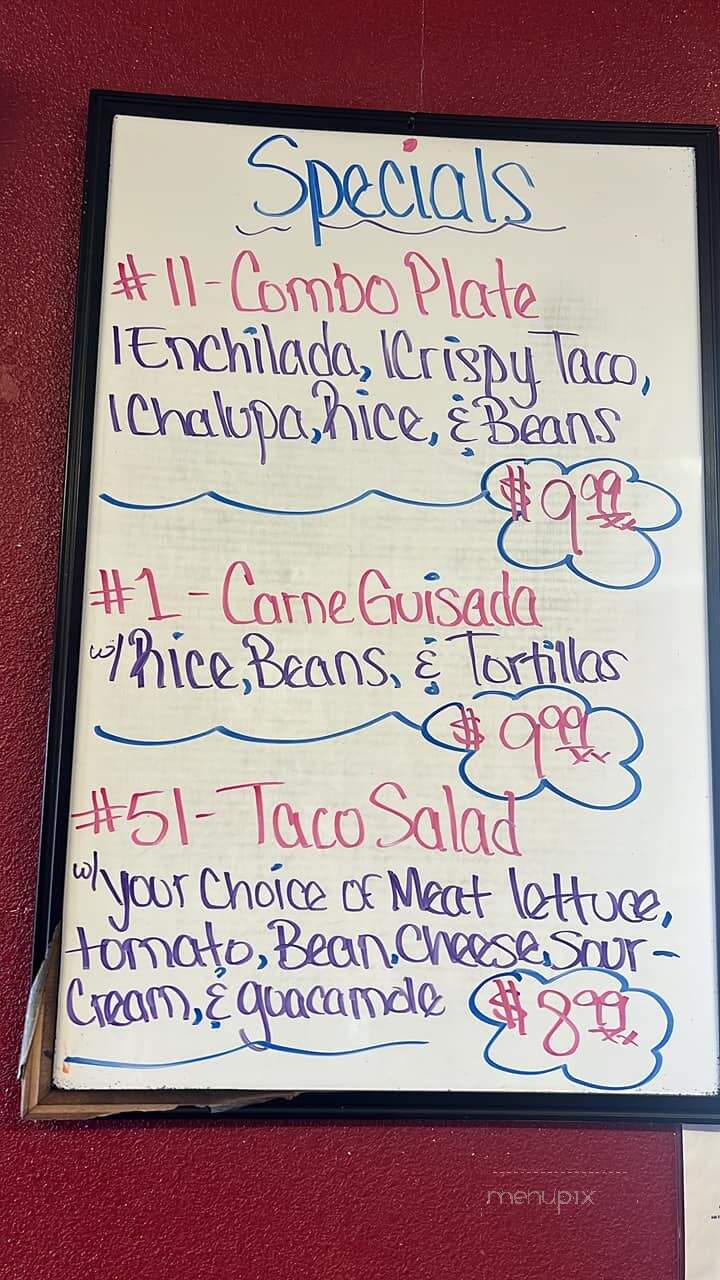 Specials
#11-Combo Plate
1 Enchilada, 1 Crispy Taco,
1 Chalupa, Rice, & Beans
$9.99
#1-Carne Guisada
w/ Rice, Beans, & Tortillas
$9.99
#51-Taco Salad
w/ your choice of Meat lettuce,
tomato, Bean, Cheese, Sour-
Cream, & guacamole
$8.99
menupix